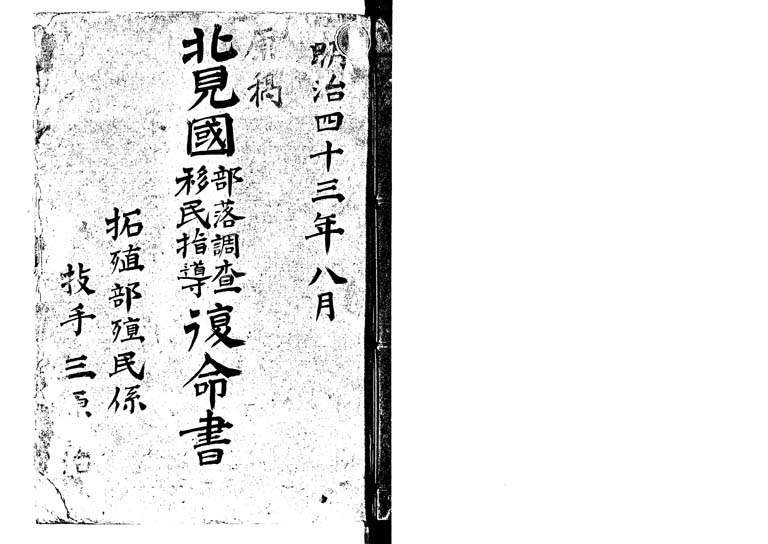 明治四十三年八月
原稿
北見國
部落調査
移民指導
復命書
拓殖部殖民係
技手三原 治